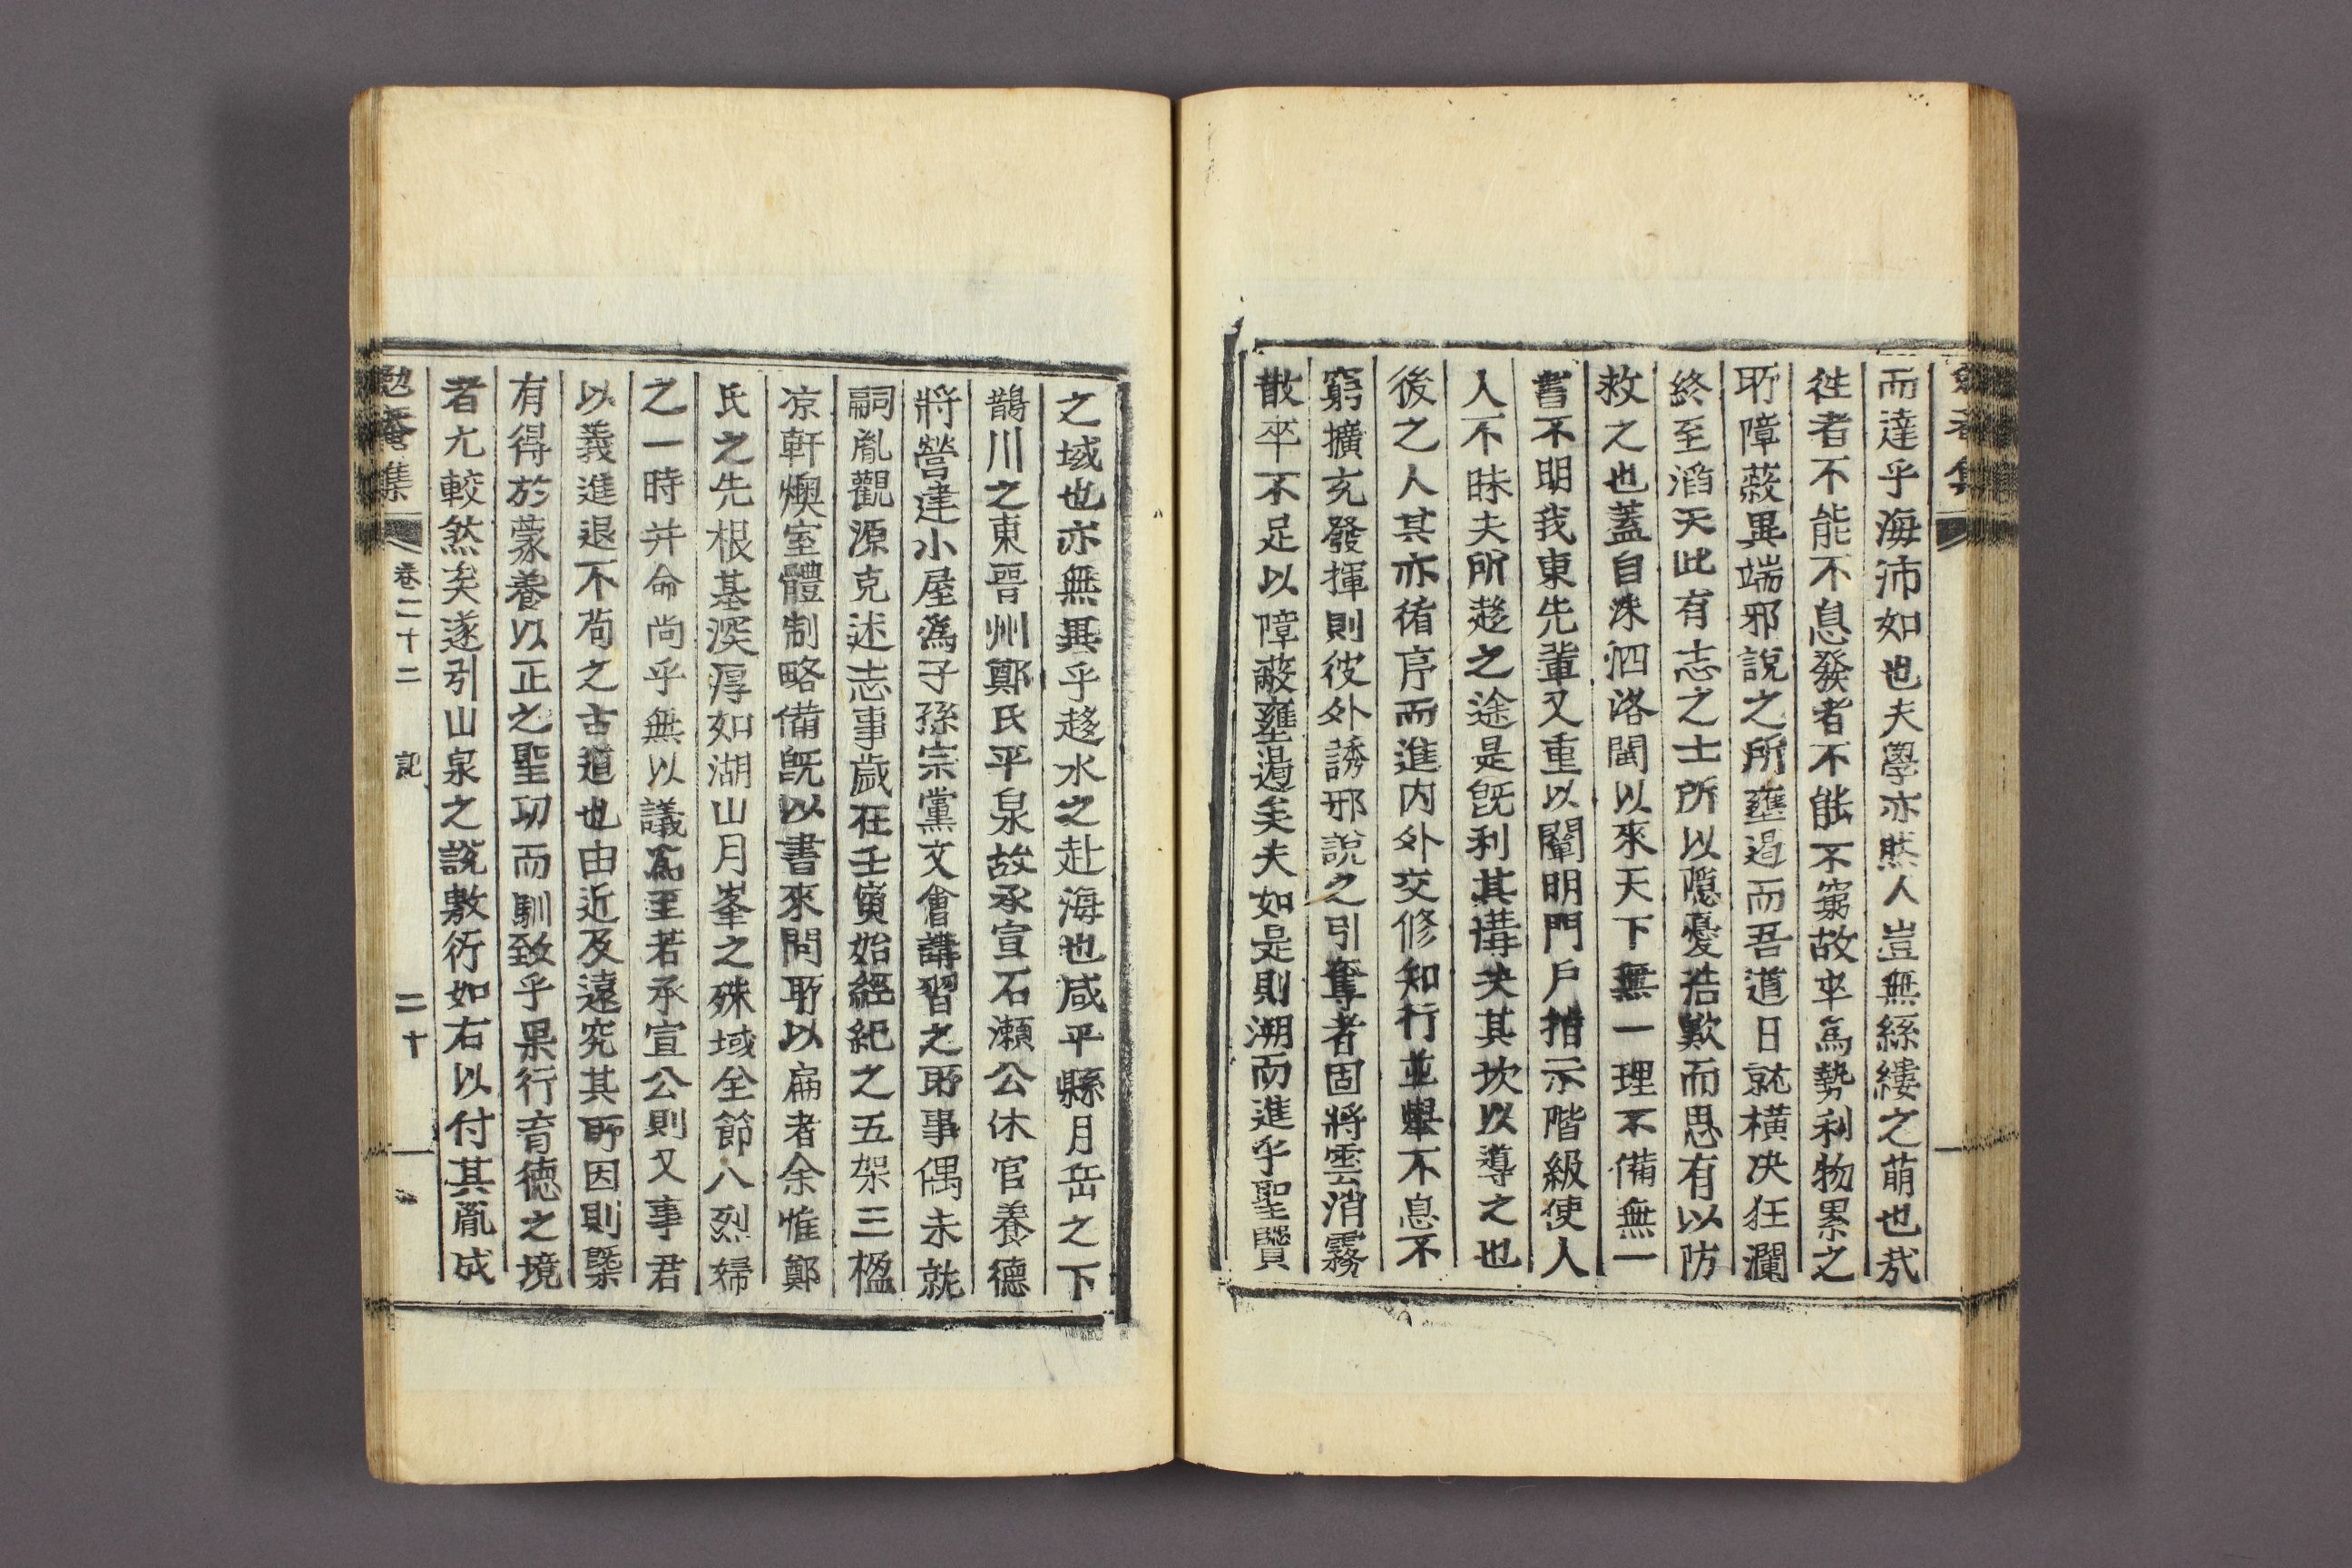 而達乎海沛如也夫學亦然人豈無絲縷之萌也㢤
徃者不能不息發者不能不窮故卒爲勢利物累之
所障蔽異端邪說之所壅遏而吾道日就橫决狂瀾
終至滔天此有志之士所以隱憂浩歎而思有以防
救之也盖自洙泗洛閩以來天下無一理不備無一
書不明我東先輩又重以闡明門戶指示階級使人
人不昧夫所趍之途是旣利其溝夬其坎以導之也
後之人其亦循序而進内外交修知行並擧不息不
窮擴充發揮則彼外誘邪說之引奪者固將雲消霧
散卒不足以障蔽壅遏矣夫如是則溯而進乎聖賢
之域也亦無異乎趍水之赴海也咸平縣月岳之下
鵲川之東晋州鄭氏平泉故承宣石瀬公休官養德
將營建小屋爲子孫宗黨文會講習之所事偶未就
嗣胤觀源克述志事歲在壬寅始經紀之五架三楹
凉軒燠室體制略備旣以書來問所以扁者余惟鄭
氏之先根基深厚如湖山月峯之殊域全節八烈婦
之一時并命尙乎無以議爲至若承宣公則又事君
以義進退不苟之古道也由近及遠究其所因則槩
有得於蒙養以正之聖功而馴致乎果行育德之境
者尤較然矣遂引山泉之說敷衍如右以付其胤成
勉菴集 卷二十二 記 二十